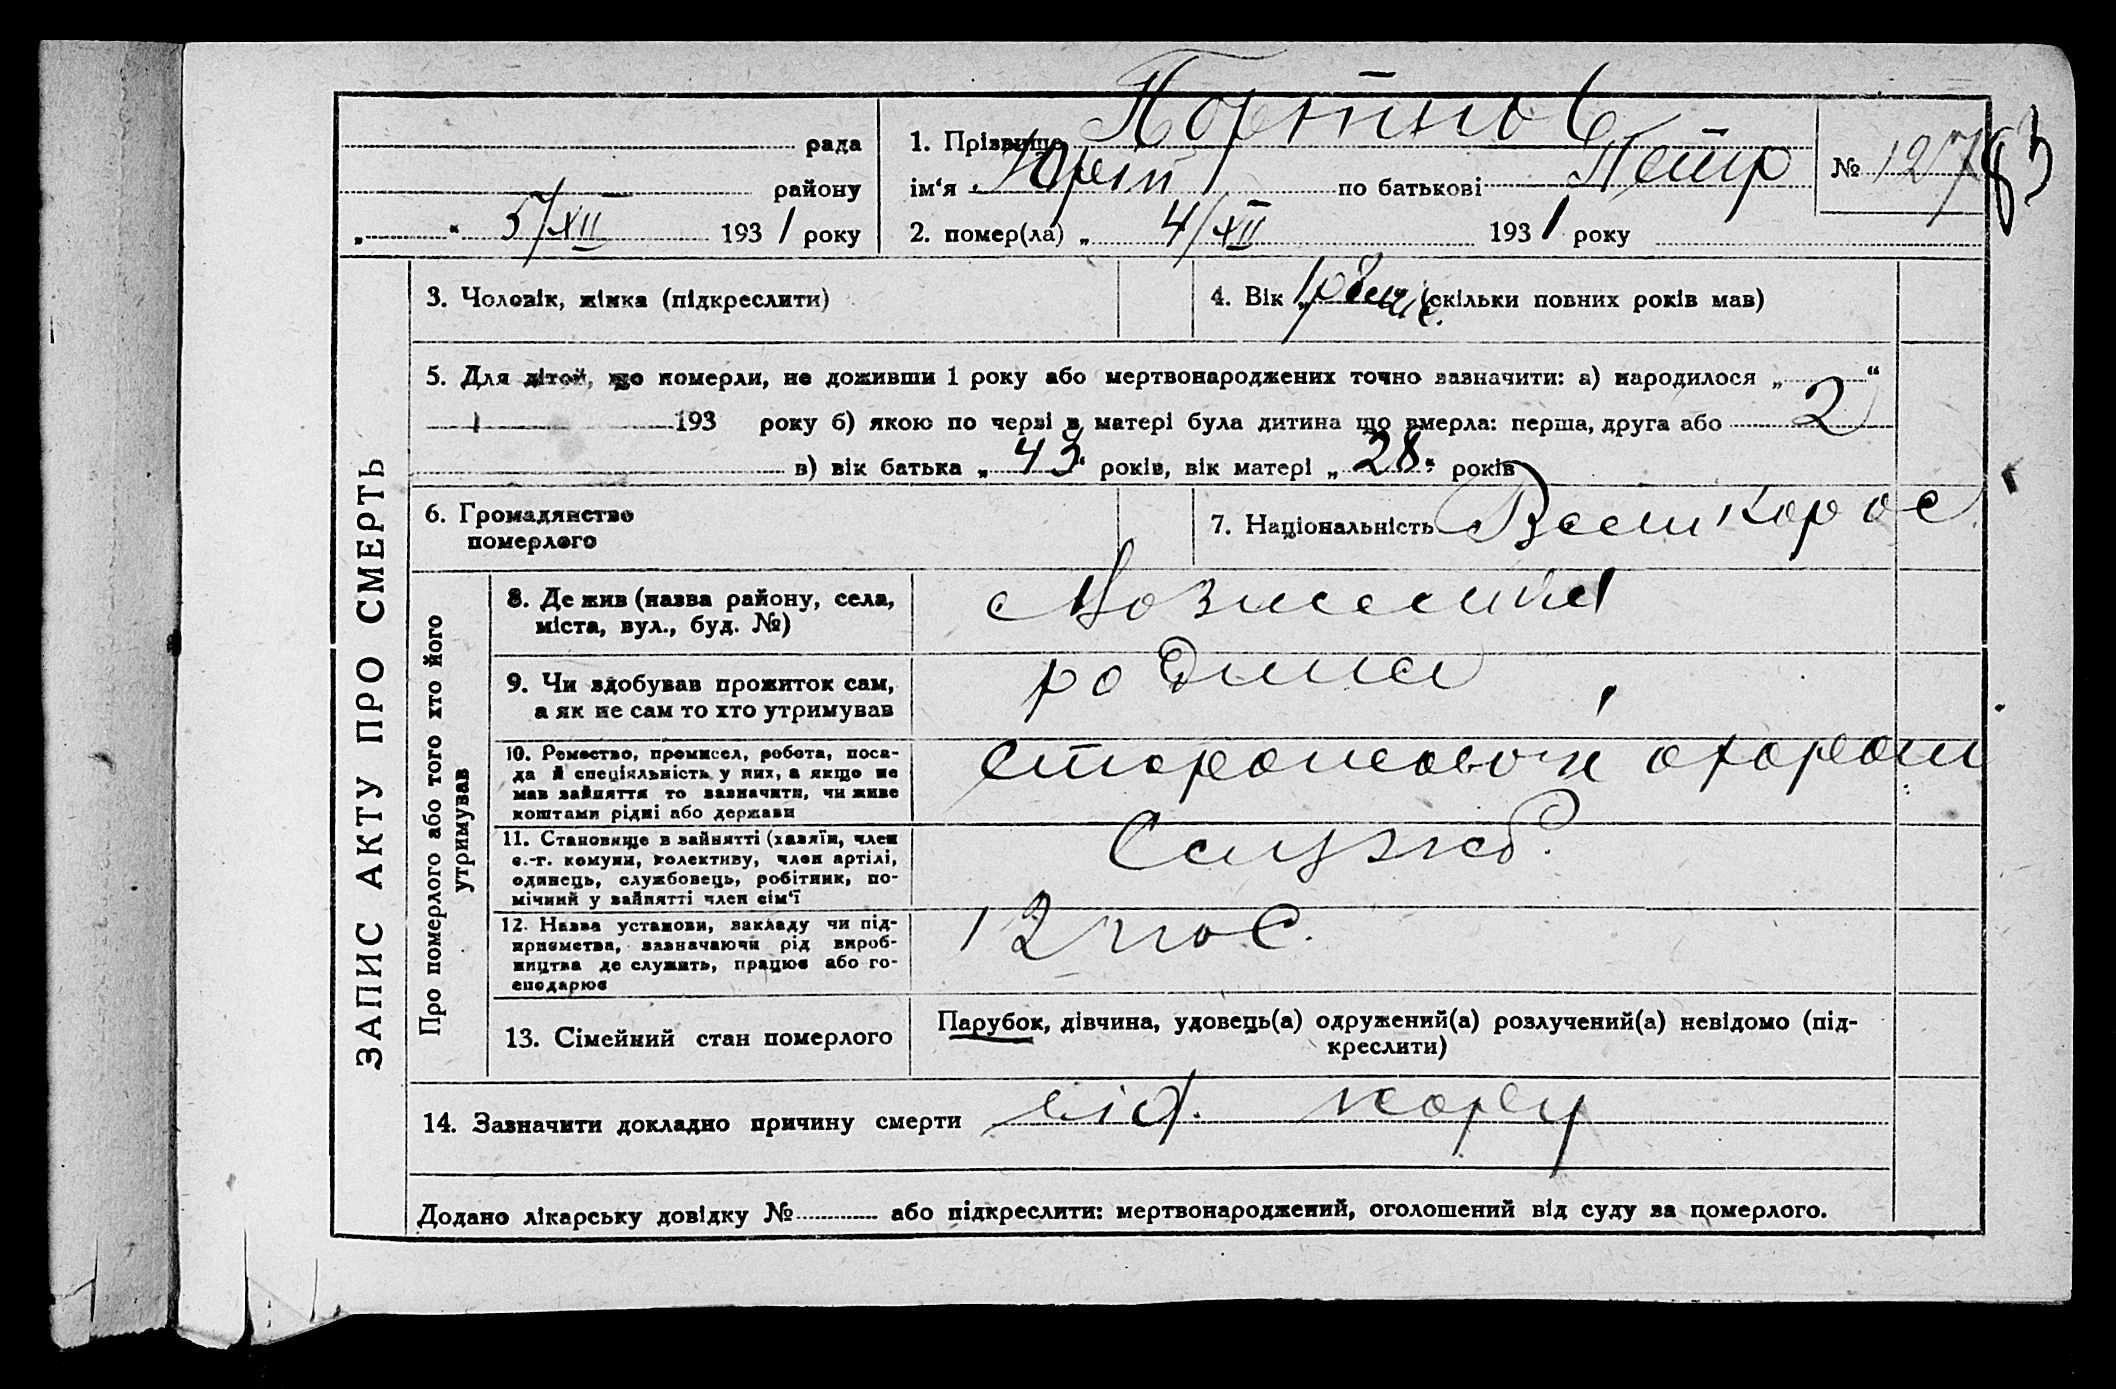 Портнов
рада 1. Прізвище
району ім‘я Юрій по батькові Петр № 127 83
„ “ 5/XII 1931 року 2. помер(ла) „ 4/XII 1931 року
ЗАПИС АКТУ ПРО СМЕРТЬ
3. Чоловік, жінка (підкреслити) 4. Вік „ 1р 8 (скільки повних років мав)
5. Для дітей, що померли, не доживши 1 року або мертвонароджених точно зазначити: а) народилося „ “
193 року б) якою по черзі в матері була дитина що вмерла: перша, друга або 2
в) вік батька „ 43 “ років, вік матері „ 28 “ років
6. Громадянство 7. Національність Великорос
померлого
Про померлого або того хто його утримував
8. Де жив (назва району, села,
міста, вул., буд. №)
9. Чи здобував прожиток сам, родина
а як не сам то хто утримував
10. Ремество, промисел, робота, поса-
да й спеціяльність у них, а якщо не
мав зайняття то зазначити, чи живе
коштами рідні або держави
11. Становище в зайнятті (хазяїн, член Служб.
с.-г. комуни, колективу, член артілі,
одинець, службовець, робітник, по-
мічний у зайнятті член сім‘ї
12. Назва установи, закладу чи під- 12 пос.
приємства, зазначаючи рід вироб-
ництва де служить, працює або го-
сподарює
13. Сімейний стан померлого Парубок, дівчина, удовець(а) одружений(а) розлучений(а) невідомо (під-
креслити)
14. Зазначити докладно причину смерти від. кору
Додано лікарську довідку № або підкреслити: мертвонароджений, оголошений від суду за померлого.